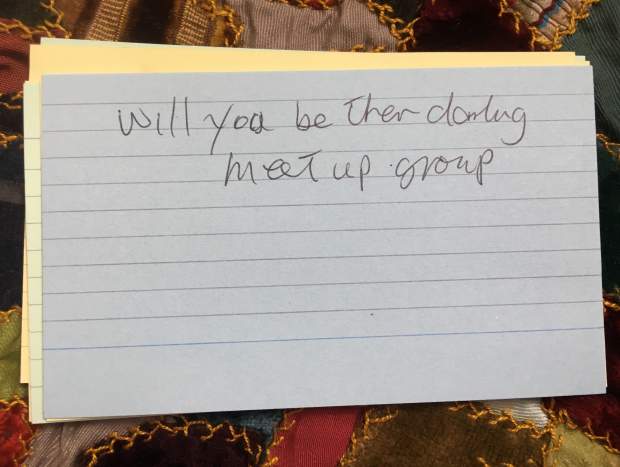 Will you be ther darling
meet up group